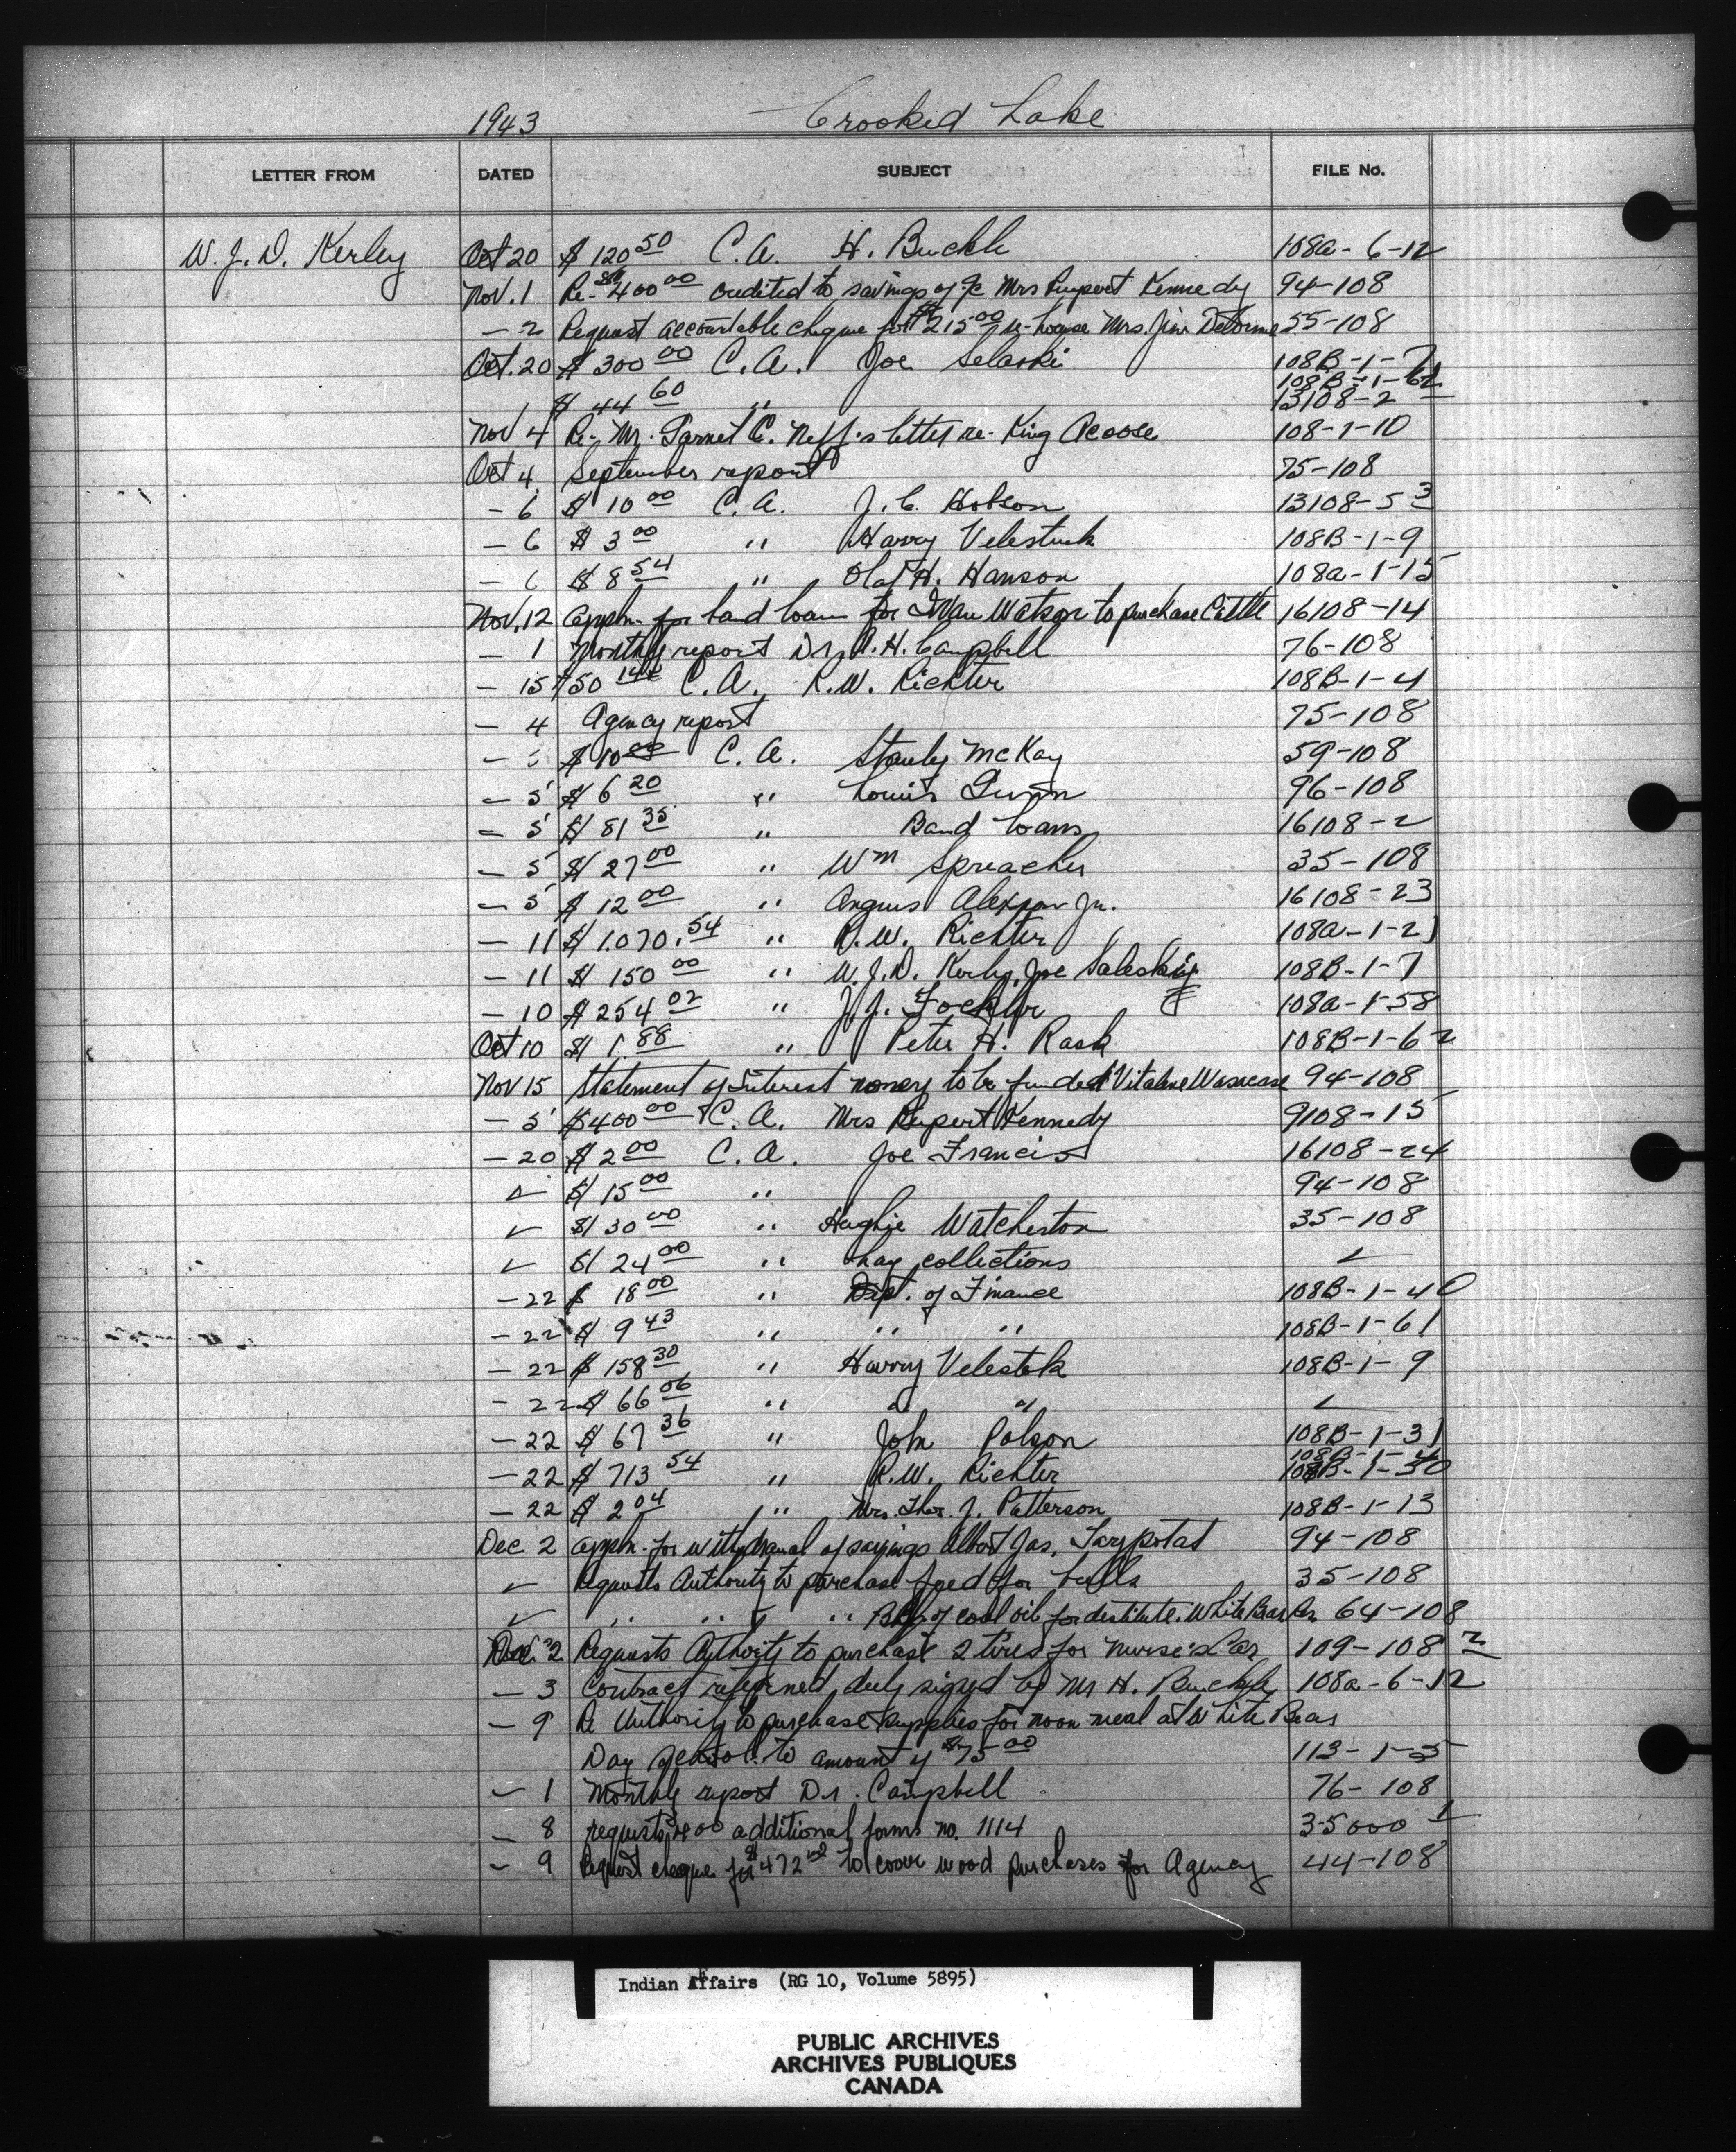 1943 Crooked Lake
LETTER FROM DATED SUBJECT FILE No.
W. J. D. Kerley Oct 20 $ 120 50 C. A. H. Buckle 108a-6-12
Nov. 1 Re- $400 00 credited to savings of Mrs Rupert Kennedy 94-108
- 2 Request accountable cheque for $215 00 re-house Mrs. Jim Delorme 55-108
Oct. 20 $ 300 00 C. A. Joe Selaski 108B-1-7
108B-1-62
$ 44 60 " 13108-2
Nov 4 Re- Mr. Garnet C. Neff's letter re- King Acoose 108-1-10
Oct 4 September report 75-108
- 6 $ 10 00 C. A. J. C. Hobson 13108-5 3
- 6 $ 3 00 " Harry Velestuk 108B-1-9
- 6 $ 8 54 " Olaf H. Hanson 108a-1-15
Nov. 12 Appln. for band loan for Watson to purchase Cattle 16108-14
- 1 Monthly report Dr. A. H. Campbell 76-108
- 15 $50 C. A. R. W. Richter 108B-1-4
- 4 Agency report 75-108
- $ 10 C. A. Stanly McKay 59-108
- 5 $ 6 20 " Louis 96-108
- 5 $ 81 35 " Band loans 16108-2
- 5 $ 27 00 " Wm Spreacher 35-108
- 5 $ 12 00 " Angus Jr. 16108-23
- 11 $ 1.070. 54 " R. W. Richter 108a-1-21
- 11 $ 150 00 " W. J. D. Kerley, Joe Saleski 108B-1-7
- 10 $ 254 02 " J. J. Fockler 108a-1-58
Oct 10 $ 1. 88 " Peter H. Rask 108B-1-62
Nov 15 Statement of Interest money to be funded Vitaline Wasacase 94-108
- 5 $400 00 C. A. Mrs Rupert Kennedy 9108-15
- 20 $ 2 00 C. A. Joe Francis 16108-24
✓ $ 15 00 " 94-108
✓ $ 30 00 " Hughie Watcheston 35-108
✓ $ 24 00 " hay collections ✓
- 22 $ 18 00 " Dept. of Finance 108B-1-40
- 22 $ 9 43 " " " 108B-1-61
- 22 $ 158 30 " Harry Velestek 108B-1-9
- 22 $ 66 06 " " " ✓
- 22 $ 67 36 " John Polson 108B-1-31
108B-1-4
- 22 $ 713 54 " R. W. Richter 108B-1-30
- 22 $ 2 04 " Mrs. Thos. J. Patterson 108B-1-13
Dec 2 Appln. for withdrawal of savings Albert Jas. Tarpotat 94-108
✓ Requests Authority to purchase feed for bulls 35-108
✓ " " " " Bbl of coal oil for destitute. White Bear Res 64-108
Dec. 2 Requests Authority to purchase 2 tires for nurse's Car 109-108 2
- 3 Contract returned duly signed by Mr H. Buckle 108a-6-12
- 9 Re Authority to purchase supplies for noon meal at White Bear
Day School to amount of $75 00 113-1-5
- 1 Monthly report Dr. Campbell 76-108
- 8 requests 400 additional forms no. 1114 35000 1
- 9 Request cheque for $472 to cover wood purchases for Agency 44-108
Indian Affairs (RG 10, Volume 5895)
PUBLIC ARCHIVES
ARCHIVES PUBLIQUES
CANADA